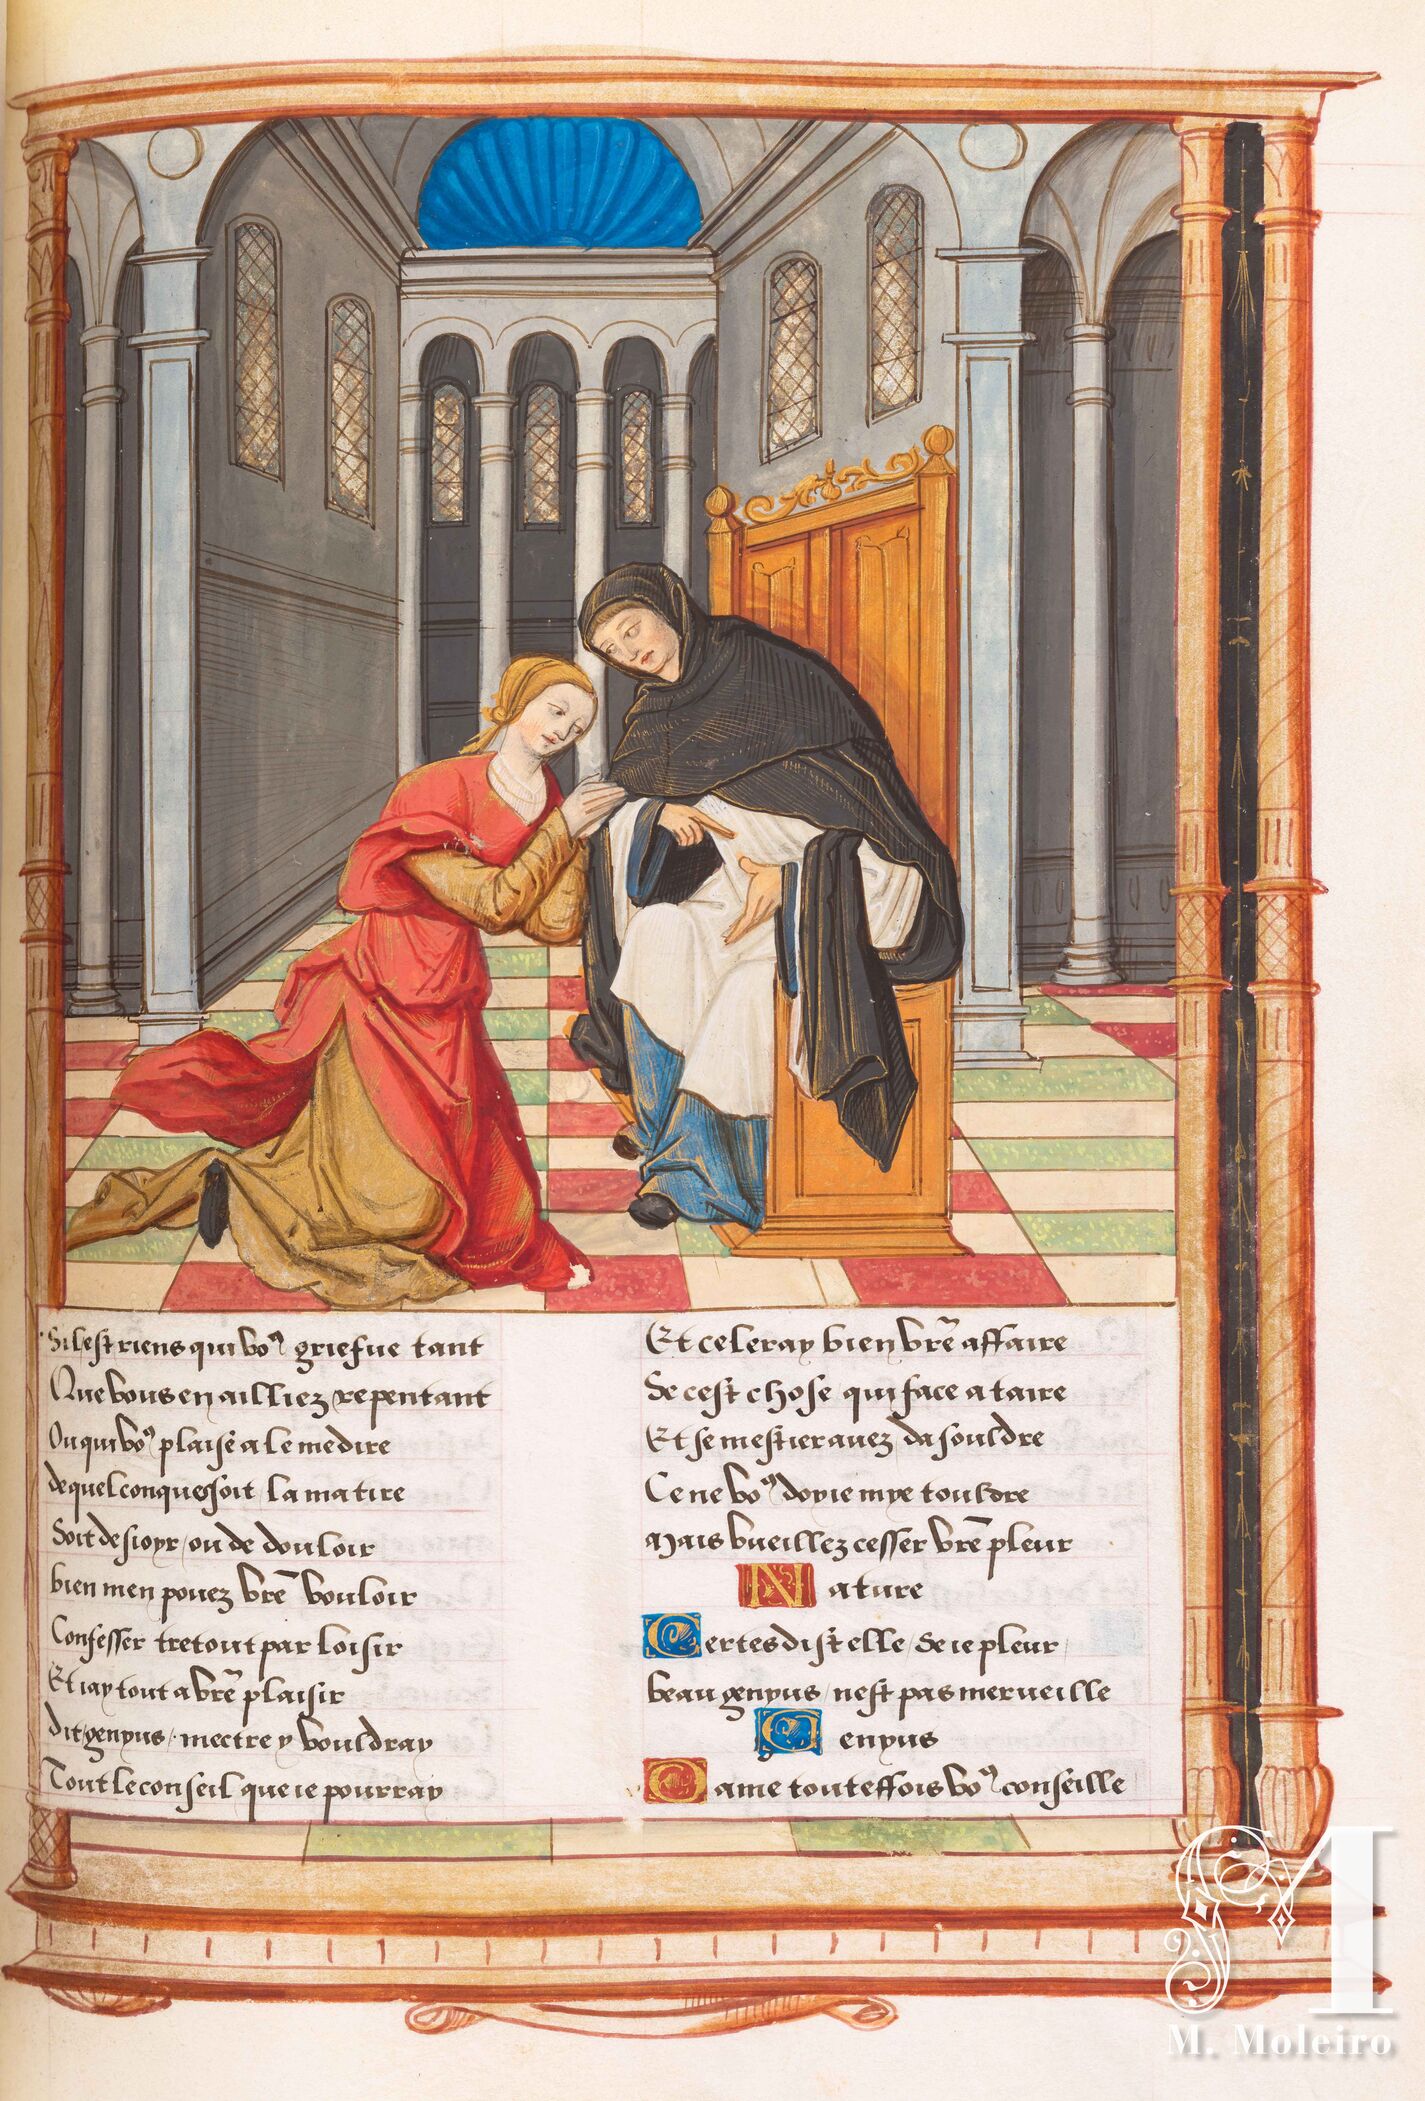 Silest riens qui voꝰ griefue tant
Que vous en ailliez repentant
Ou qui voꝰ plaise a le me dire
de quelconques soit / la matire
Soit desioyr / ou de douloir
bien men pouez vr̄e vouloir
Confesser tretout par loisir
Et iay tout a vr̄e plaisir
dit genyus / mectre y vouldray
Tout le conseil que ie pourray
Et celeray bien vr̄e affaire
Se cest chose qui face a taire
Et se mestier auez dasouldre
Ce ne voꝰ doyie mye touldre
Mais vueillez cesser vr̄e pleur
Nature
Certes dist elle / se ie pleur /
beau genyus / nest pas merueille
Genyus
Dame touteffois voꝰ conseille
M. Moleiro